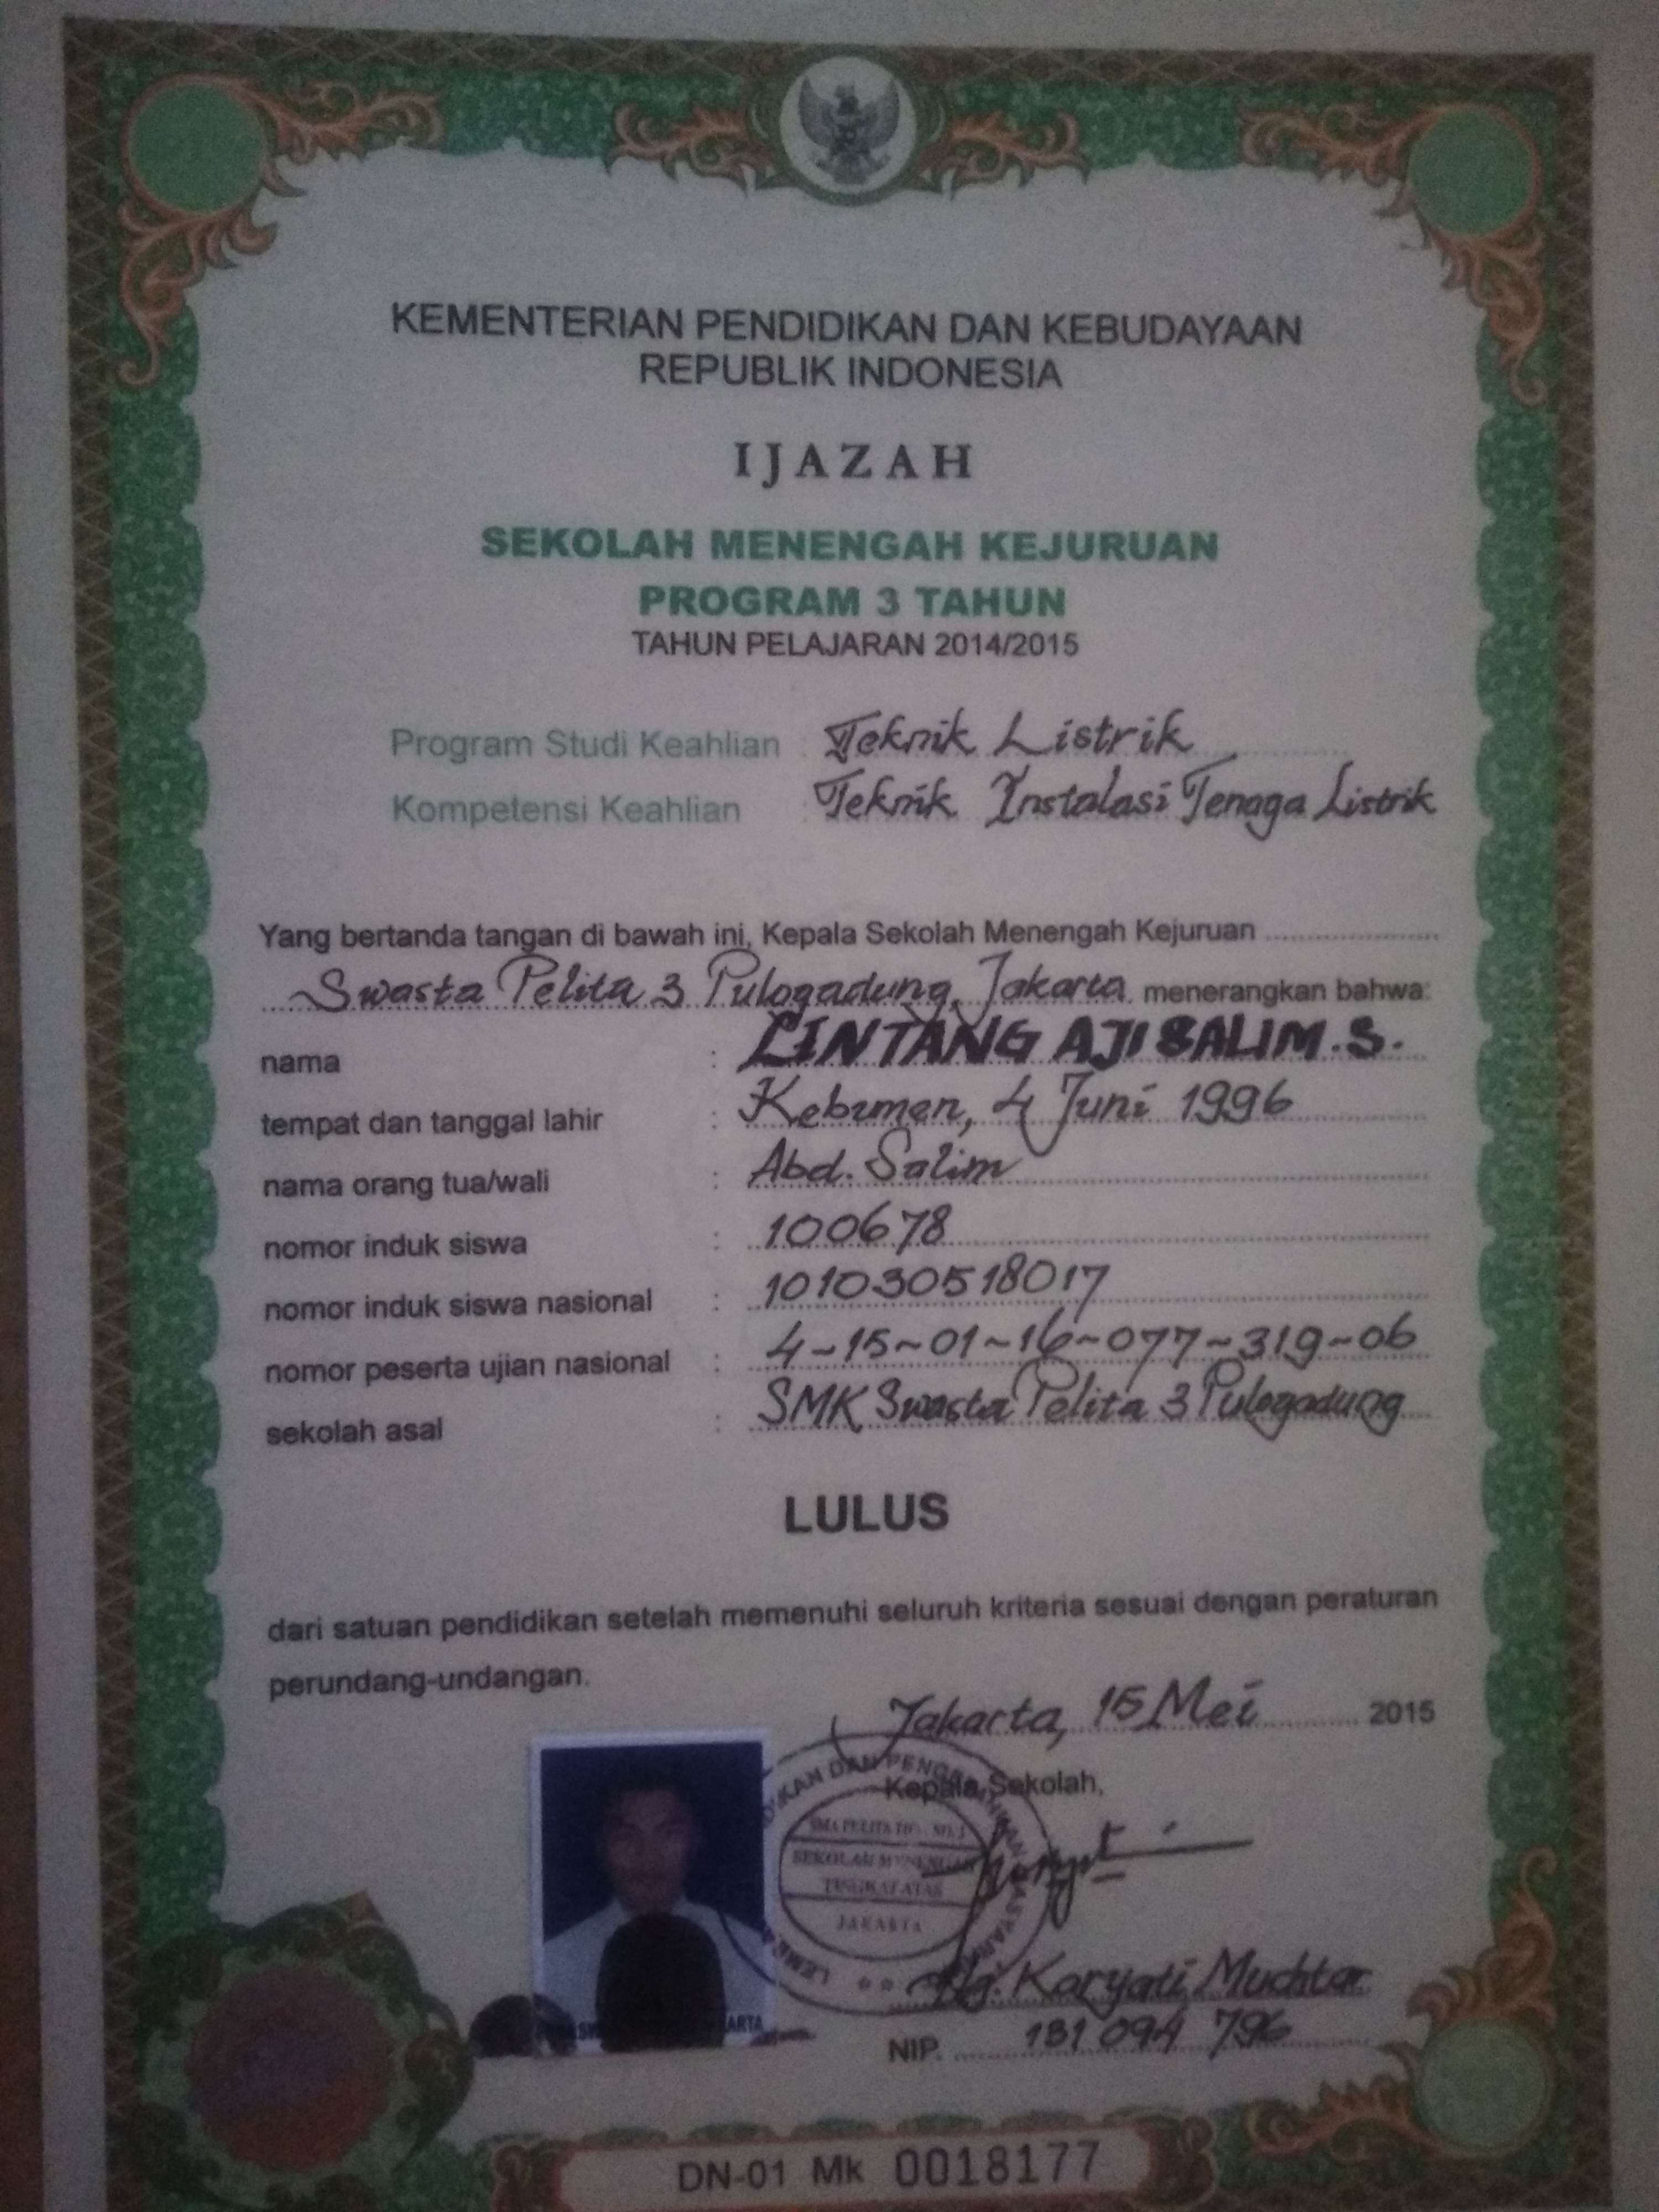 KEMENTERIAN PENDIDIKAN DAN KEBUDAYAAN
REPUBLIK INDONESIA
IJAZAH
SEKOLAH MENENGAH KEJURUAN
PROGRAM 3 TAHUN
TAHUN PELAJARAN 2014/2015
Program Studi Keahlian : Teknik Listrik
Kompetensi Keahlian : Teknik Instalasi Tenaga Listrik
Yang bertanda tangan di bawah ini, Kepala Sekolah Menengah Kejuruan
Swasta Pelita 3 Pulogadung, Jakarta menerangkan bahwa:
nama : LINTANG AJI SALIM . S.
tempat dan tanggal lahir : Kebumen, 4 Juni 1996
nama orang tua/wali : Abd. Salim
nomor induk siswa : 100678
nomor induk siswa nasional : 101030518017
nomor peserta ujian nasional : 4-15-01-16-077-319-06
sekolah asal : SMK Swasta Pelita 3 Pulogadung
LULUS
dari satuan pendidikan setelah memenuhi seluruh kriteria sesuai dengan peraturan
perundang-undangan.
Jakarta, 15 Mei 2015
Kepala Sekolah,
SEKOLAH MENENGAH
TINGKAT ATAS
JAKARTA
Hj. Karyati Muchtar
NIP. 131 094 796
DN-01 Mk 0018177